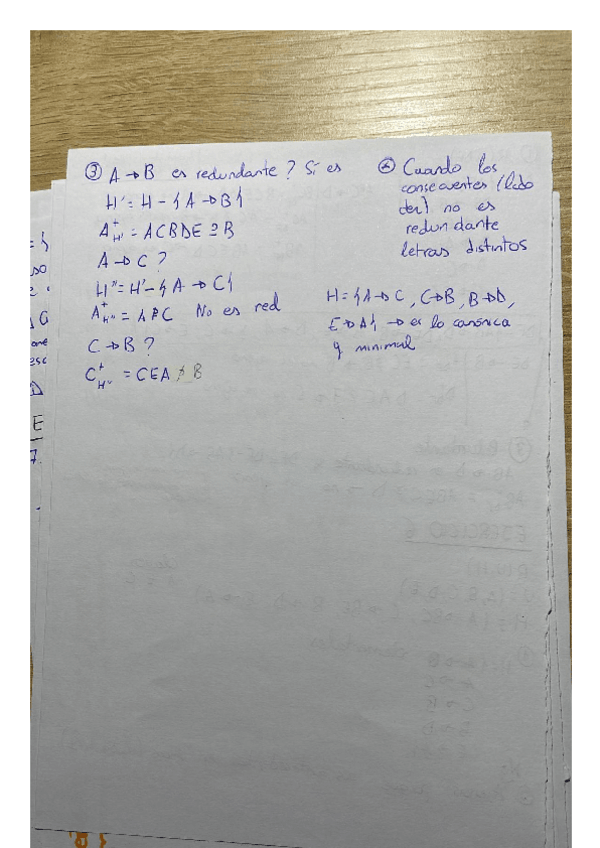 ③ A → B es redundante? Sí es
H' = H - { A → B }
A⁺H' = ACBDE ⊇ B
A → C ?
H'' = H' - { A → C }
A⁺H'' = No es red
C → B ?
C⁺H'' = CEA ⊉ B
④ Cuando los
consecuentes (lado
der) no es
redundante
letras distintos
H = { A → C, C → B, B → D,
E → A } → es la canónica
y minimal